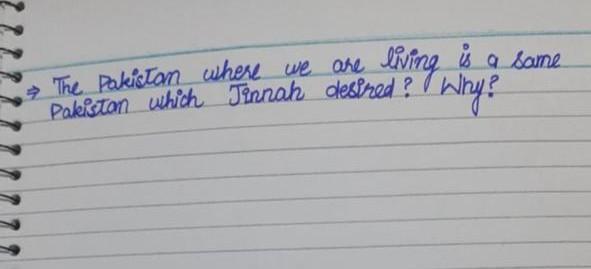 ⇒ The Pakistan where we are living is a same
Pakistan which Jinnah desired? Why?